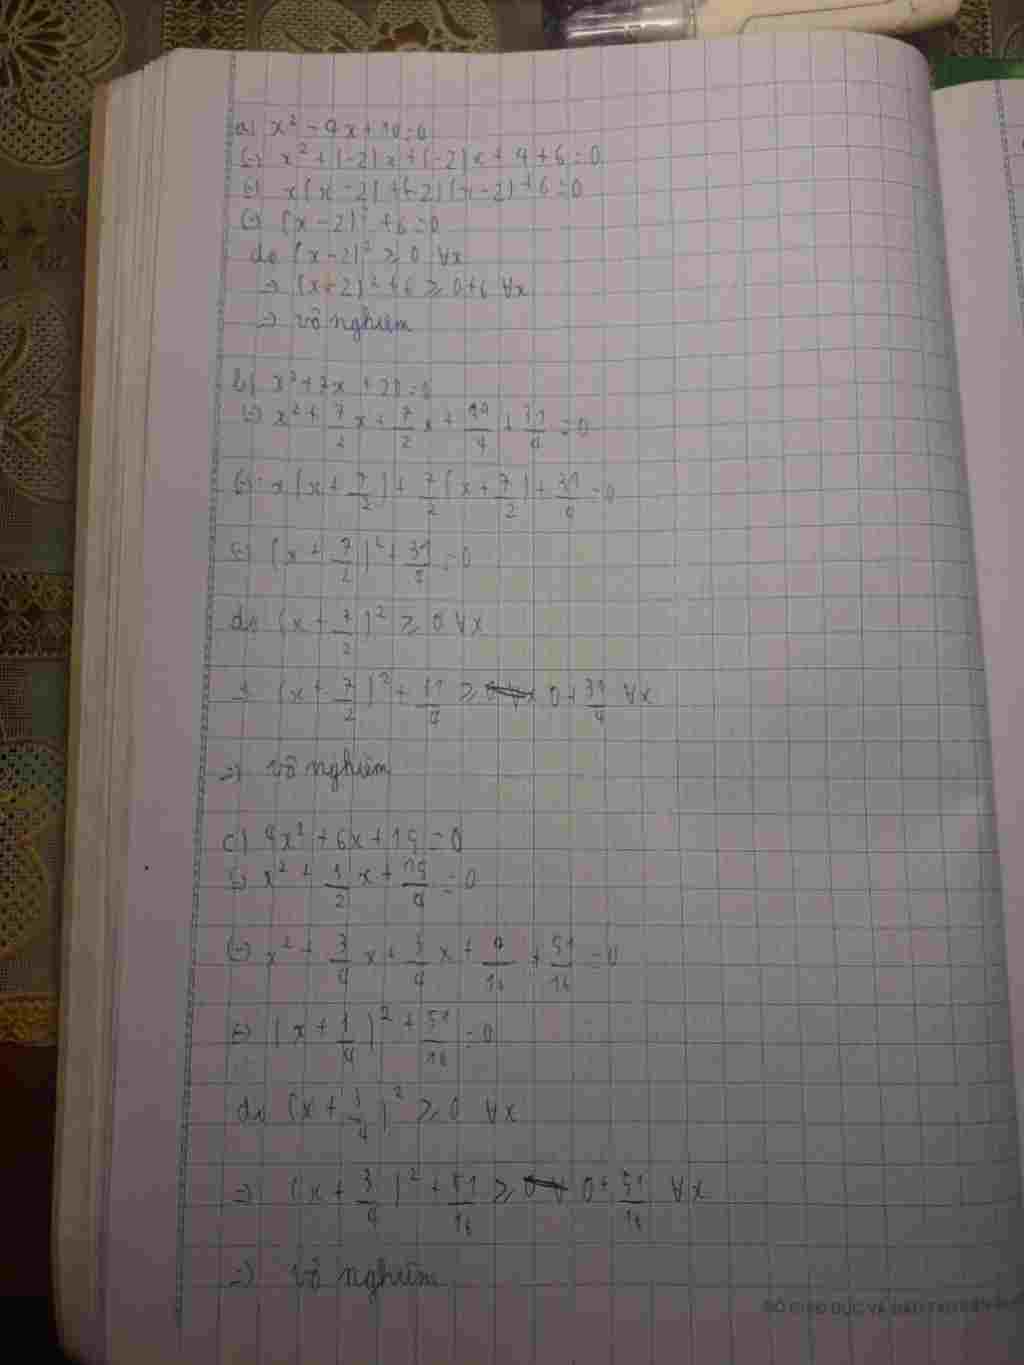 a) x² - 4x + 10 = 0
(=) x² + (-2)x + (-2)x + 4 + 6 = 0
(=) x(x - 2) + (-2)(x - 2) + 6 = 0
(=) (x - 2)² + 6 = 0
do (x - 2)² ≥ 0 ∀x
=> (x + 2)² + 6 ≥ 0 + 6 ∀x
=> vô nghiệm
b) x² + 7x + 20 = 0
(=) x² + 7/2 x + 7/2 x + 49/4 + 31/4 = 0
(=) x(x + 7/2) + 7/2 (x + 7/2) + 31/4 = 0
(=) (x + 7/2)² + 31/4 = 0
do (x + 7/2)² ≥ 0 ∀x
=> (x + 7/2)² + 31/4 ≥ 0 + 31/4 ∀x
=> vô nghiệm
c) 4x² + 6x + 15 = 0
(=) x² + 3/2 x + 15/4 = 0
(=) x² + 3/4 x + 3/4 x + 9/16 + 51/16 = 0
(=) (x + 3/4)² + 51/16 = 0
do (x + 3/4)² ≥ 0 ∀x
=> (x + 3/4)² + 51/16 ≥ 0 + 51/16 ∀x
=> vô nghiệm
SỞ GIÁO DỤC VÀ ĐÀO TẠO